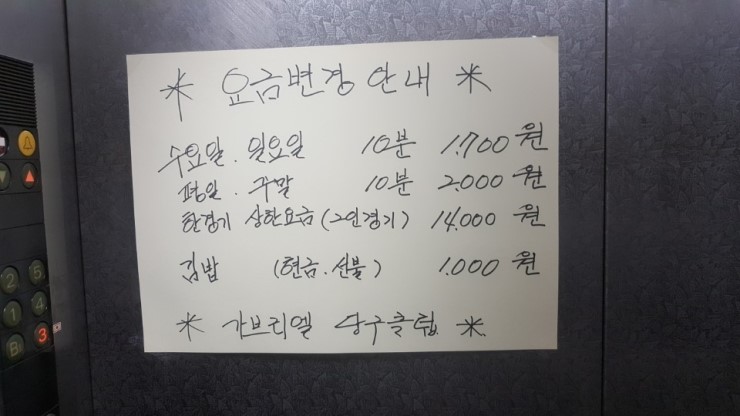 * 요금변경 안내 *
수요일. 일요일 10분 1.700 원
평일. 주말 10분 2.000 원
한경기 상한요금(2인경기) 14.000 원
김밥 (현금.선불) 1.000 원
* 가브리엘 당구클럽. *
2 5
1 4
B 3